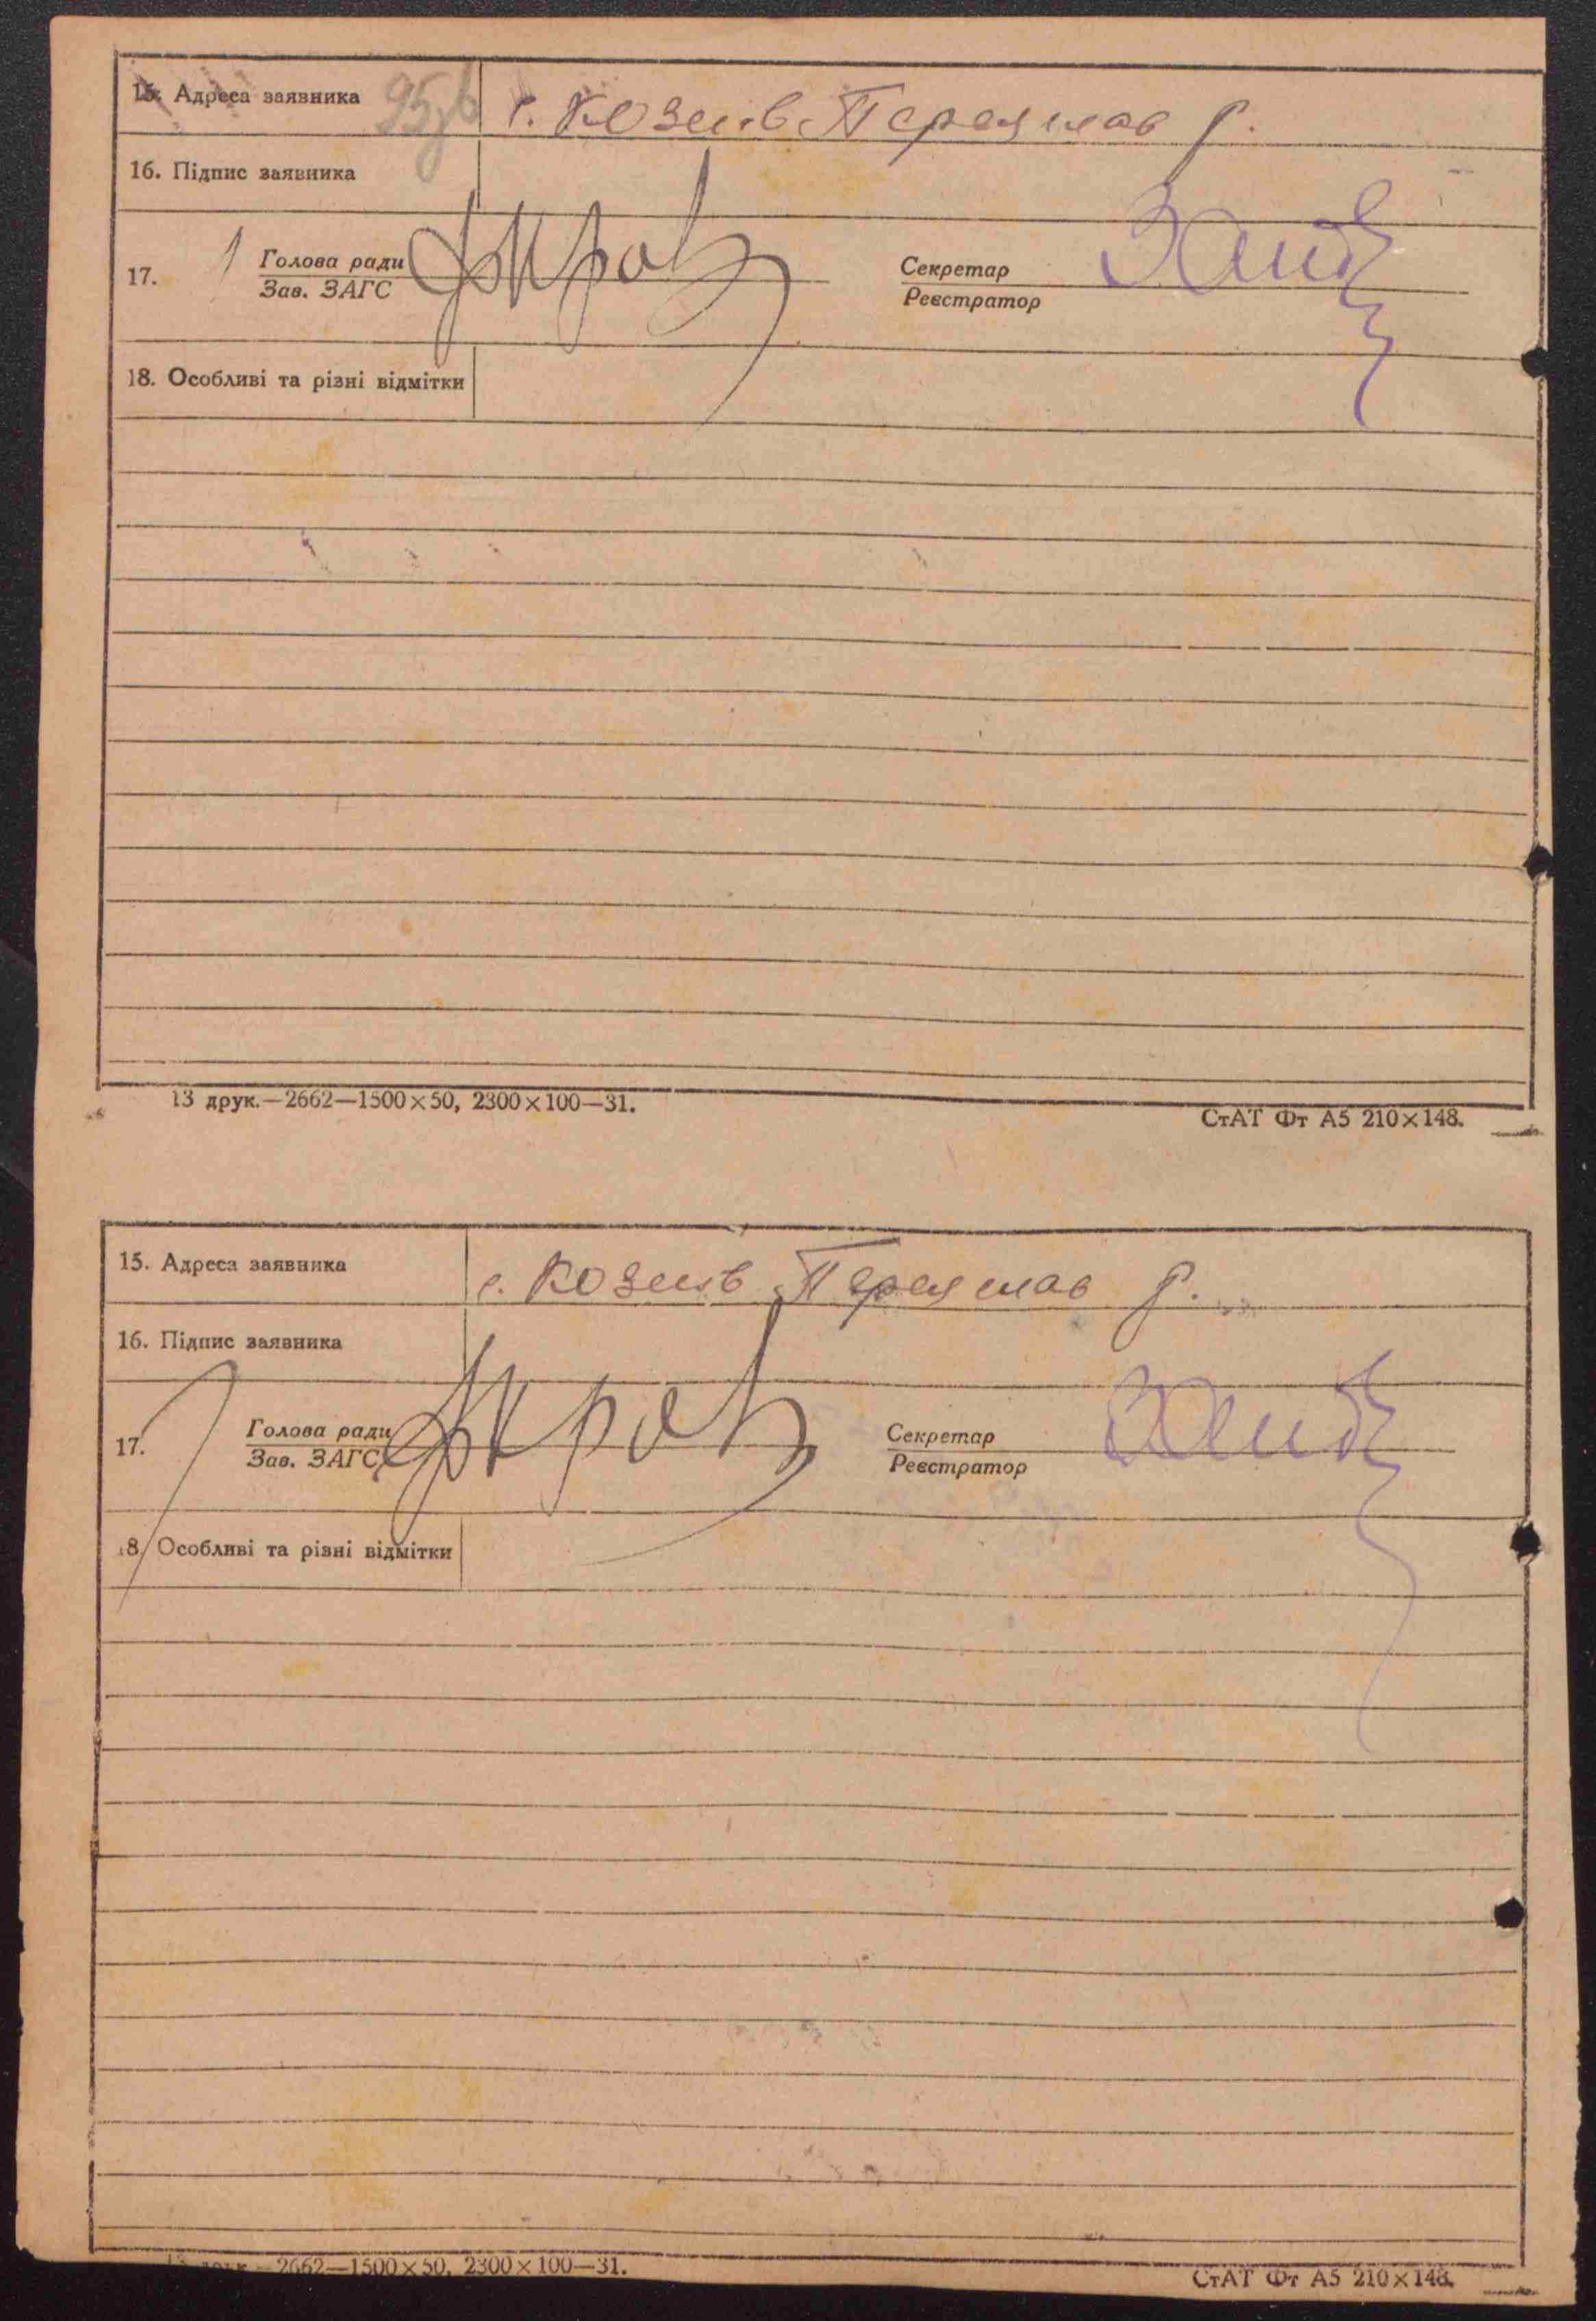 15. Адреса заявника 95зв с. Козлів Переяслав р.
16. Підпис заявника
17. Голова ради Секретар
Зав. ЗАГС Реєстратор
18. Особливі та різні відмітки
13 друк.—2662—1500×50, 2300×100—31. СтАТ Фт А5 210×148.
15. Адреса заявника с. Козлів Переяслав р.
16. Підпис заявника
17. Голова ради Секретар
Зав. ЗАГС Реєстратор
18. Особливі та різні відмітки
13 друк.—2662—1500×50, 2300×100—31. СтАТ Фт А5 210×148.